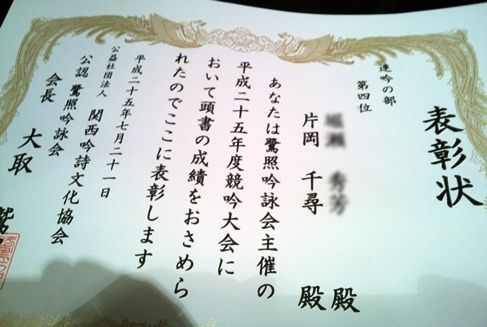 表彰状
連吟の部
第四位
片岡 千尋 殿
殿
あなたは鷺照吟詠会主催の
平成二十五年度競吟大会に
おいて頭書の成績をおさめら
れたのでここに表彰します
平成二十五年七月二十一日
公益社団法人 関西吟詩文化協会
公認 鷺照吟詠会
会長 大取